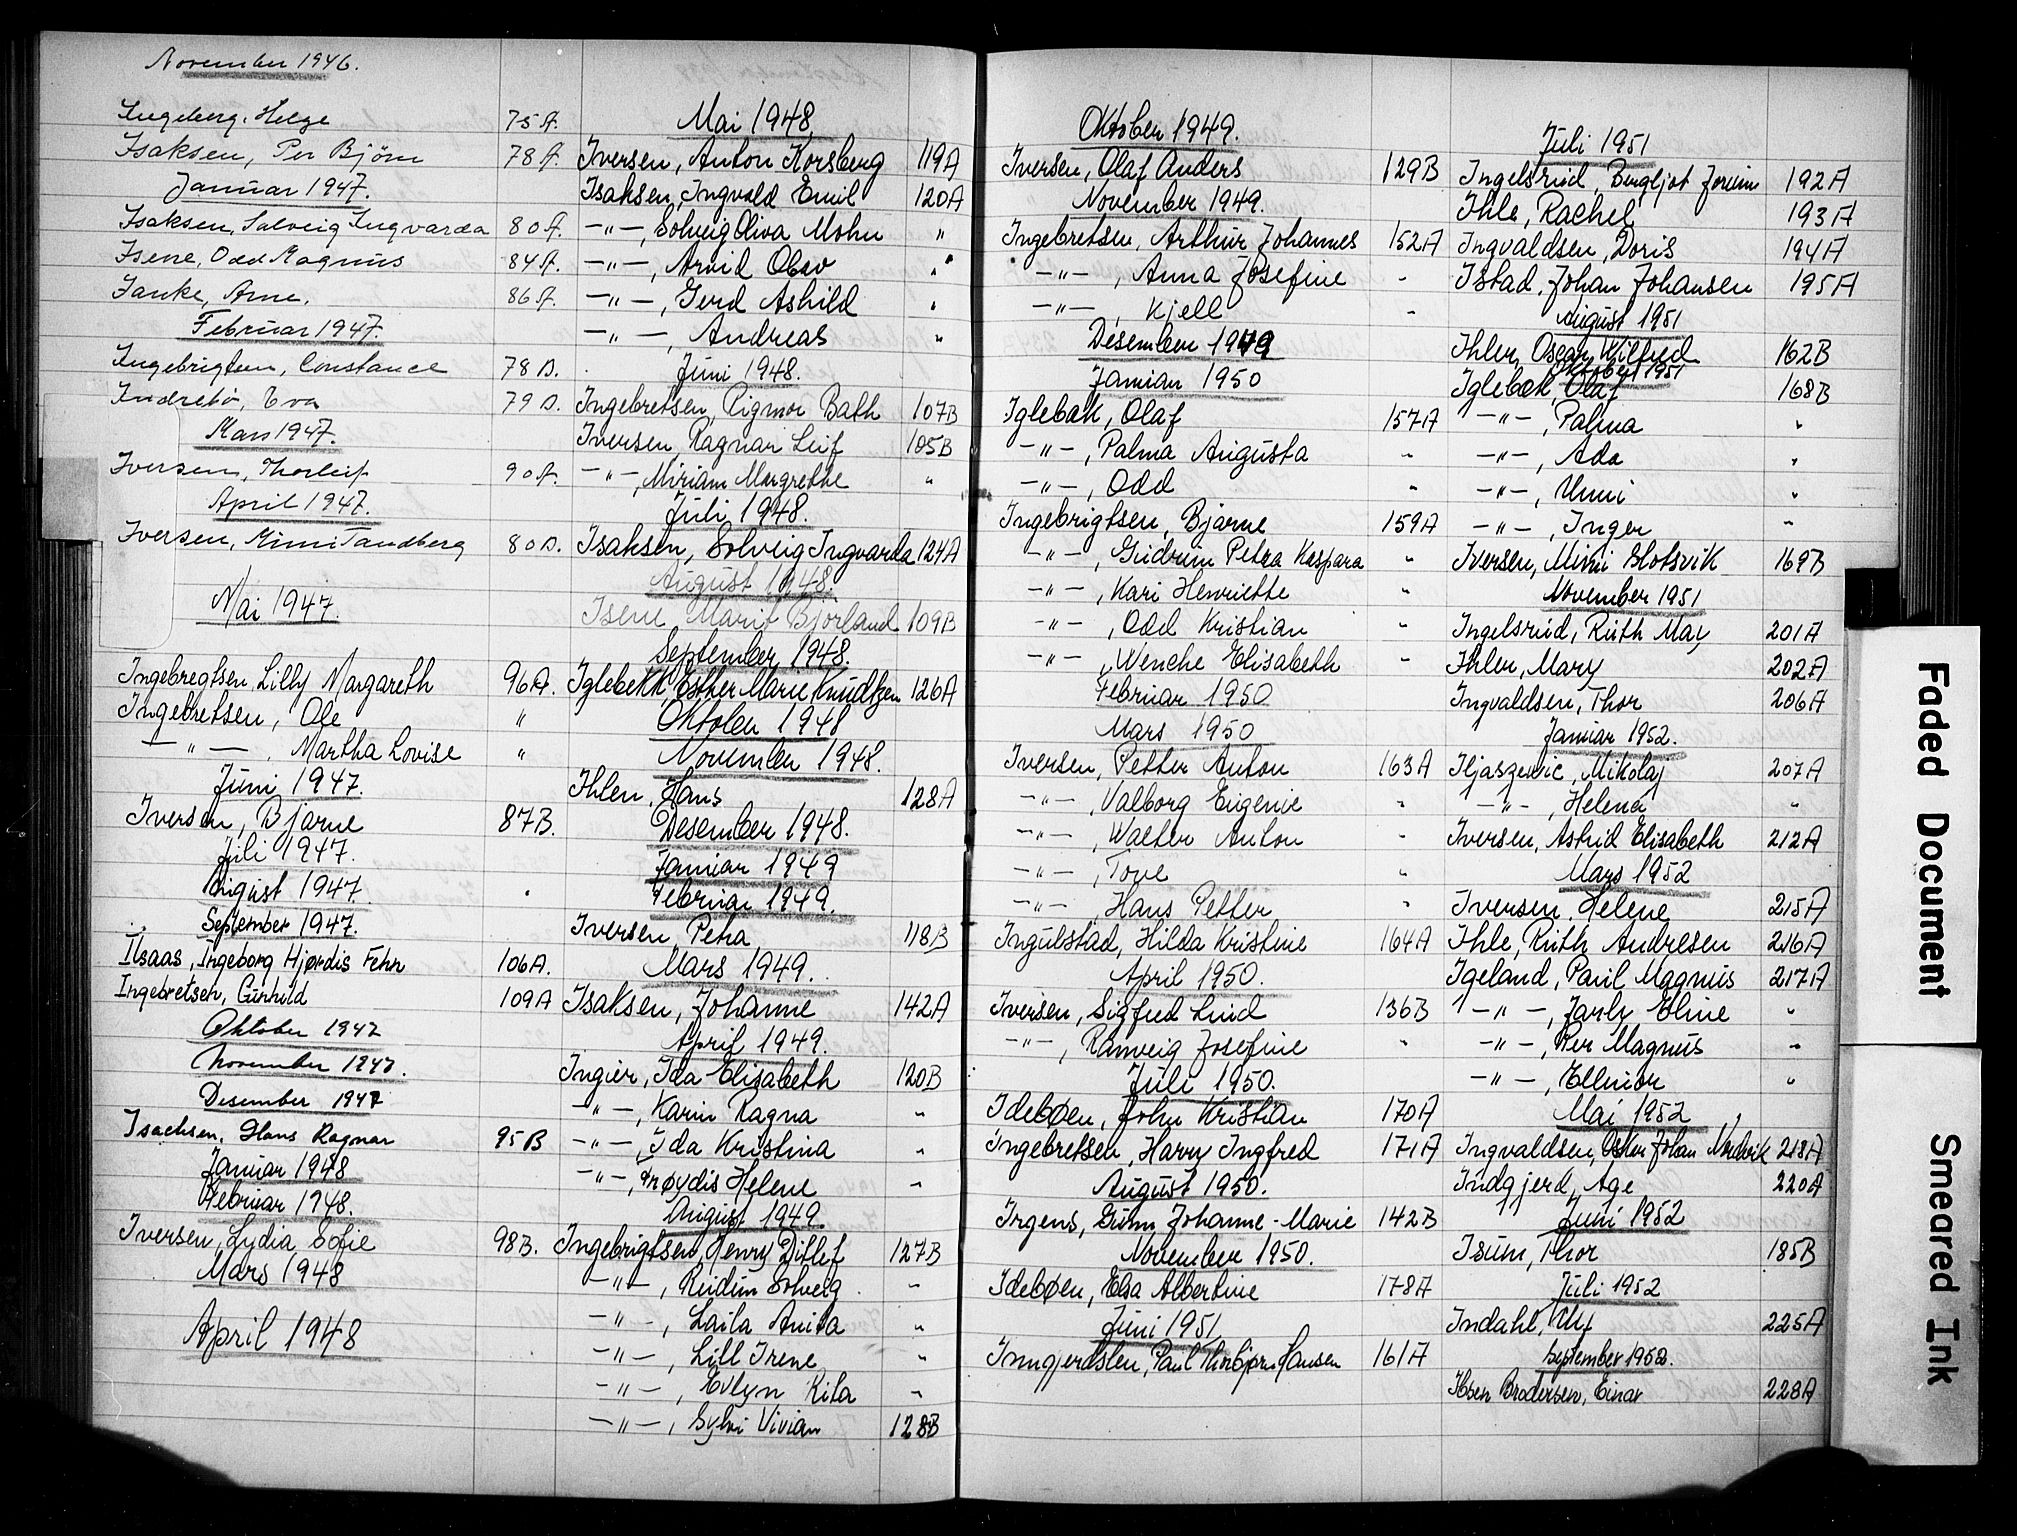 November 1946.
Ingeberg, Helge 75 A.
Isaksen, Per Bjørn 78 A.
Januar 1947.
Isaksen, Solveig Ingvarda 80 A.
Isene, Odd Magnus 84 A.
Janke, Arne. 86 A.
Februar 1947.
Ingebrigtsen, Constance 78 B.
Indrebø, Eva 79 B.
Mars 1947.
Iversen, Thorleif 90 A.
April 1947.
Iversen, Mimi Tandberg 80 B.
Mai 1947.
Ingebregtsen, Lilly Margareth 96 A.
Ingebretsen, Ole "
— " — , Martha Lovise "
Juni 1947.
Iversen, Bjarne 87 B.
Juli 1947.
August 1947.
September 1947.
Ilsaas, Ingeborg Hjørdis Fehn 106 A.
Ingebretsen, Gunhild 109 A
Oktober 1947
November 1947.
Desember 1947
Isachsen, Hans Ragnar 95 B
Januar 1948
Februar 1948.
Iversen, Lydia Sofie 98 B.
Mars 1948
April 1948
Mai 1948
Iversen, Anton Korsberg 119 A
Isaksen, Ingvald Emil 120 A
— " —, Solveig Oliva Mohn "
— " —, Arvid Olav "
— " —, Gerd Ashild "
— " —, Andreas "
Juni 1948.
Ingebretsen, Rigmor Bath 107 B
Iversen, Ragnar Leif 105 B
— " —, Miriam Margrethe "
Juli 1948.
Isaksen, Solveig Ingvarda 124 A
August 1948.
Isene Marit Bjørland 109 B
September 1948.
Iglebekk, Esther Marie Knudtzen 126 A
Oktober 1948
November 1948.
Ihlen, Hans 128 A
Desember 1948.
Januar 1949
Februar 1949.
Iversen, Petra 118 B
Mars 1949.
Isaksen, Johanne 142 A
April 1949.
Ingier, Ida Elisabeth 120 B
— " —, Karin Ragna "
— " —, Ida Kristina "
— " —, Frøydis Helene "
August 1949.
Ingebrigtsen, Henry Ditlef 127 B
— " —, Reidun Solveig "
— " —, Laila Anita "
— " —, Lill Irene "
— " —, Evlyn Rita "
— " —, Sylvi Vivian 128 B
Oktober 1949.
Iversen, Olaf Anders 129 B
November 1949.
Ingebretsen, Arthur Johannes 152 A
— " —, Anna Josefine "
— " —, Kjell "
Desember 1949
Januar 1950
Iglebæk, Olaf 157 A
— " —, Palma Augusta "
— " —, Odd "
Ingebrigtsen, Bjarne 159 A
— " —, Gudrun Petra Kaspara "
— " —, Kari Henriette "
— " —, Odd Kristian "
— " —, Wenche Elisabeth "
Februar 1950
Mars 1950
Iversen, Petter Anton 163 A
— " —, Valborg Eugenie "
— " —, Walter Anton "
— " —, Tove "
— " —, Hans Petter "
Ingulstad, Hilda Kristine 164 A
April 1950.
Iversen, Sigfred Lund 136 B
— " —, Ranveig Josefine "
Juli 1950.
Idebøen, John Kristian 170 A
Ingebretsen, Harry Ingfred 171 A
August 1950.
Irgens, Gunn Johanne-Marie 142 B
November 1950.
Idebøen, Elsa Albertine 178 A
Juni 1951
Inngjerdslen, Paul Thorbjørn Hansen 161 A
Juli 1951
Ingelsrud, Bergljot Jorunn 192 A
Ihle, Rachel 193 A
Ingvaldsen, Doris 194 A
Istad, Johan Johansen 195 A
August 1951
Ihler, Oscar Wilfred 162 B
Oktober 1951
Iglebæk, Olaf 168 B
— " —, Palma "
— " —, Ada "
— " —, Unni "
— " —, Inger "
Iversen, Mimi Slotsvik 169 B
November 1951
Ingelsrud, Ruth May 201 A
Ihler, Mary 202 A
Ingvaldsen, Thor 206 A
Januar 1952.
Iljaszewic, Mikolaj 207 A
— " —, Helena "
Iversen, Astrid Elisabeth 212 A
Mars 1952
Iversen, Helene 215 A
Ihle, Ruth Andresen 216 A
Igeland, Paul Magnus 217 A
— " —, Jarly Eline "
— " —, Per Magnus "
— " —, Ellinor "
Mai 1952
Ingvaldsen, Johan 218 A
Indgjerd, Åge 220 A
Juni 1952
Isum, Thor 185 B
Juli 1952
Indahl, Ulf 225 A
September 1952.
Ibsen Brodersen, Einar 228 A
Faded Document
Smeared Ink